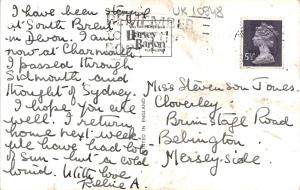 I have been staying
at South Brent
in Devon. I am
now at Charmouth
I passed through
Sidmouth and
thought of Sydney.
I hope you are
well. I return
home next week
We have had lots
of sun - but a cold
wind. With love
A.
UK 10848
Harvey
Barton
PRINTED IN ENGLAND
5½
Miss Stevenson Jones.
Cloverley
Road
Bebington.
Merseyside